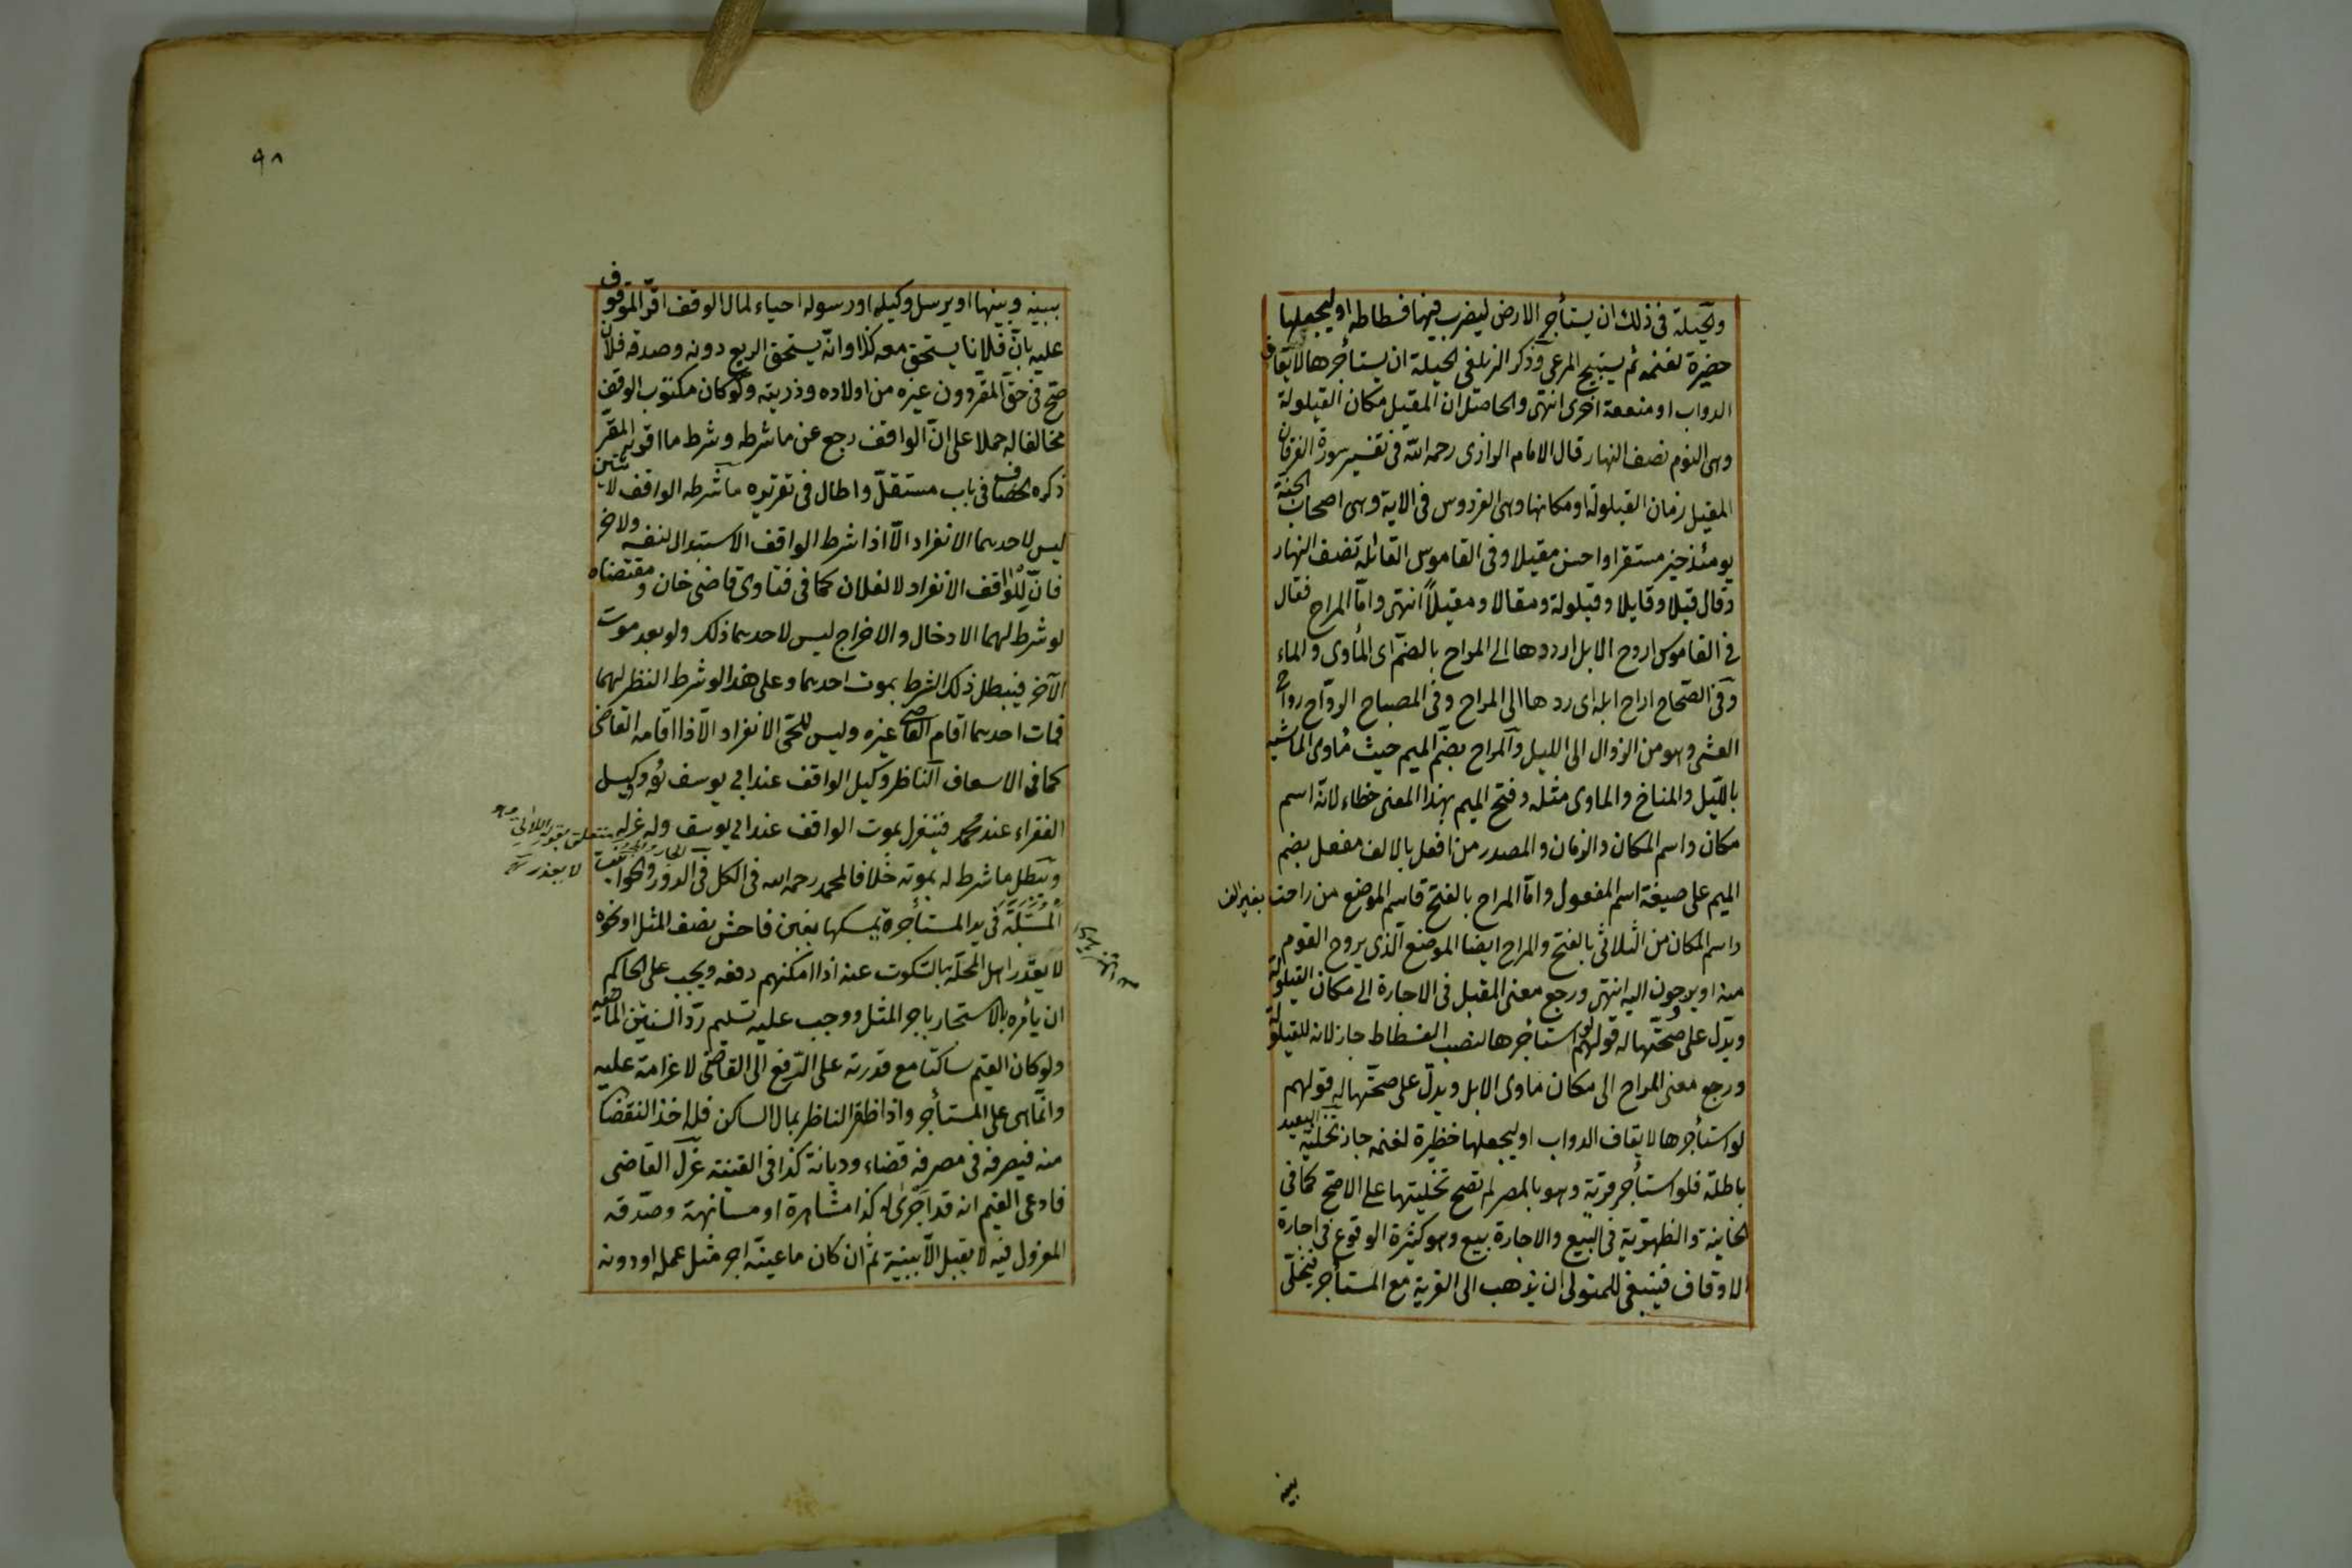 والحيلة فى ذلك ان يستأجر الارض ليضرب فيها فسطاطه او ليجعلها
حضيرة لغنمه ثم يستبيح المرعى وذكر الزيلعى الحيلة ان يستأجرها لايقاف
الدواب او منفعة اخرى انتهى والحاصل ان المقيل مكان القيلولة
وهى النوم نصف النهار قال الامام الرازى رحمه الله فى تفسير سورة الفرقان
المقيل زمان القيلولة او مكانها وهى الفردوس فى الاية وهى اصحاب الجنة
يومئذ خير مستقرا واحسن مقيلا وفى القاموس القائلة نصف النهار
وقال قيلا وقايلا وقيلولة ومقالا ومقيلاً انتهى وامّا المراح فقال
فى القاموس اروح الابل ارددها الى المراح بالضمّ اى المأوى والماء
وفى الصّحاح اراح ابله اى ردها الى المراح وفى المصباح الروّاح رواح
العشى وهو من الزوال الى الليل والمراح بضمّ الميم حيث مأوى الماشية
بالليل والمناخ والماوى مثله وفتح الميم بهذا المعنى خطاء لانّه اسم
مكان واسم المكان والزمان والمصدر من افعل بالالف مفعل بضم
الميم على صيغة اسم المفعول وامّا المراح بالفتح فاسم الموضع من راحت بغير الف
واسم المكان من الثلاثى بالفتح والمراح ايضا الموضع الذى يروح القوم
منه او يرجون اليه انتهى ورجع معنى المقيل فى الاجارة الى مكان القيلولة
ويدلّ على صحّتها له قولهم لو استأجرها لنصب الفسطاط جاز لانه للقيلولة
ورجع معنى المراح الى مكان ماوى الابل ويدلّ على صحّتها له قولهم
لو استأجرها لايقاف الدواب او ليجعلها حظيرة لغنمه جاز تخلية البعيد
باطلة فلو استأجر قرية وهو بالمصر لم تصح تخليتها على الاصح كما فى
الخانية والظهيرية فى البيع والاجارة بيع وهو كثيرة الوقوع فى اجارة
الاوقاف فينبغى للمتولى ان يذهب الى القرية مع المستأجر فيخلّى
بينه
٩٨
بينه وبينها او يرسل وكيله او رسوله احياء لمال الوقف اقرّ الموقوف
عليه بانّ فلانا يستحق معه كذا وانّه يستحق الريع دونه وصدقه فلان
صحّ فى حقّ المقر دون غيره من اولاده وذريته ولو كان مكتوب الوقف
مخالفا له حملا على انّ الواقف رجع عن ماشرطه وشرط ما اقر به المقرّ
ذكره الخصاف فى باب مستقلّ واطال فى تقريره ماشرطه الواقف لاثنين
ليس لاحدهما الانفراد الّا اذا شرط الواقف الاستبدال لنفسه ولاخر
فانّ للواقف الانفراد لا لفلان كما فى فتاوى قاضى خان ومقتضاه
لو شرط لهما الادخال والاخراج ليس لاحدهما ذلك ولو بعد موت
الآخر فيبطل ذلك الشرط بموت احدهما وعلى هذا لو شرط النظر لهما
فمات احدهما اقام القاضى غيره وليس للحىّ الانفراد الّا اذا اقامه القاضى
كما فى الاسعاف الناظر وكيل الواقف عند ابى يوسف ووكيل
الفقراء عند محمد فينعزل بموت الواقف عند ابى يوسف وله عزله
ويبطل ما شرط له بموته خلافا لمحمد رحمه الله فى الكل فى الدور والحوانيت
المسبّلة فى يد المستأجر يمسكها بغبن فاحش نصف المثل او نحوه
لا يعذر اهل المحلّة بالسّكوت عنه اذا امكنهم دفعه ويجب على الحاكم
ان يأمره بالاستئجار باجر المثل ووجب عليه تسليم ردّ السنين الماضية
ولو كان القيّم ساكتا مع قدرته على الرّفع الى القاضى لا غرامة عليه
وانّما هى على المستأجر واذا ظفر الناظر بمال الساكن فله اخذ النقصان
منه فيصرفه فى مصرفه قضاء وديانة كذا فى القنية عزل القاضى
فادعى القيم انه قد اجرى له كذا مشاهرة او مسانهة وصدّقه
المعزول فيه لا يقبل الّا ببينة ثم ان كان ما عينه اجر مثل عمله او دونه
متعلق بقوله
لا يعذر